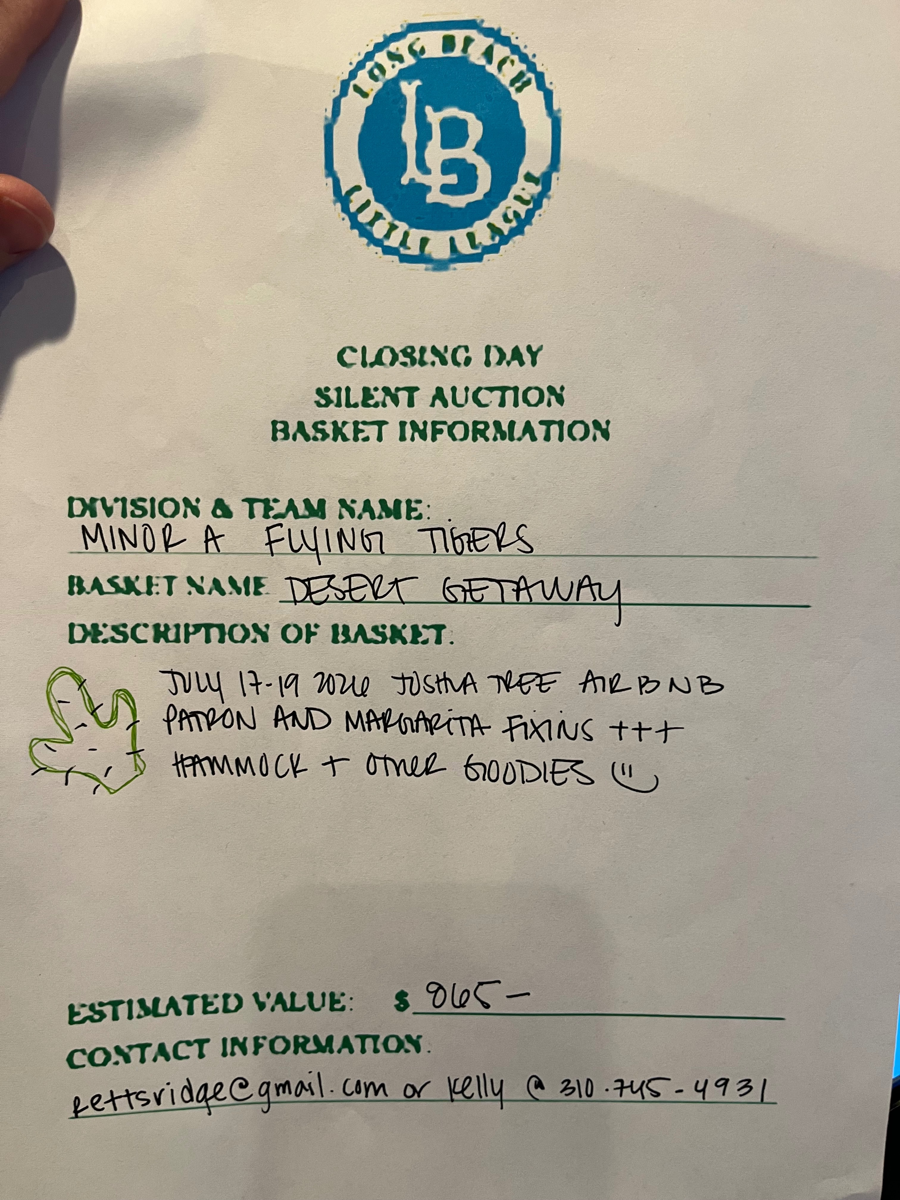 LONG BEACH
LB
LITTLE LEAGUE
CLOSING DAY
SILENT AUCTION
BASKET INFORMATION
DIVISION & TEAM NAME:
MINOR A FLYING TIGERS
BASKET NAME DESERT GETAWAY
DESCRIPTION OF BASKET:
JULY 17-19 2026 JOSHUA TREE AIRBNB
PATRON AND MARGARITA FIXINS +++
HAMMOCK + OTHER GOODIES
ESTIMATED VALUE: $ 865-
CONTACT INFORMATION:
rettsridge@gmail.com or Kelly @ 310.745-4931